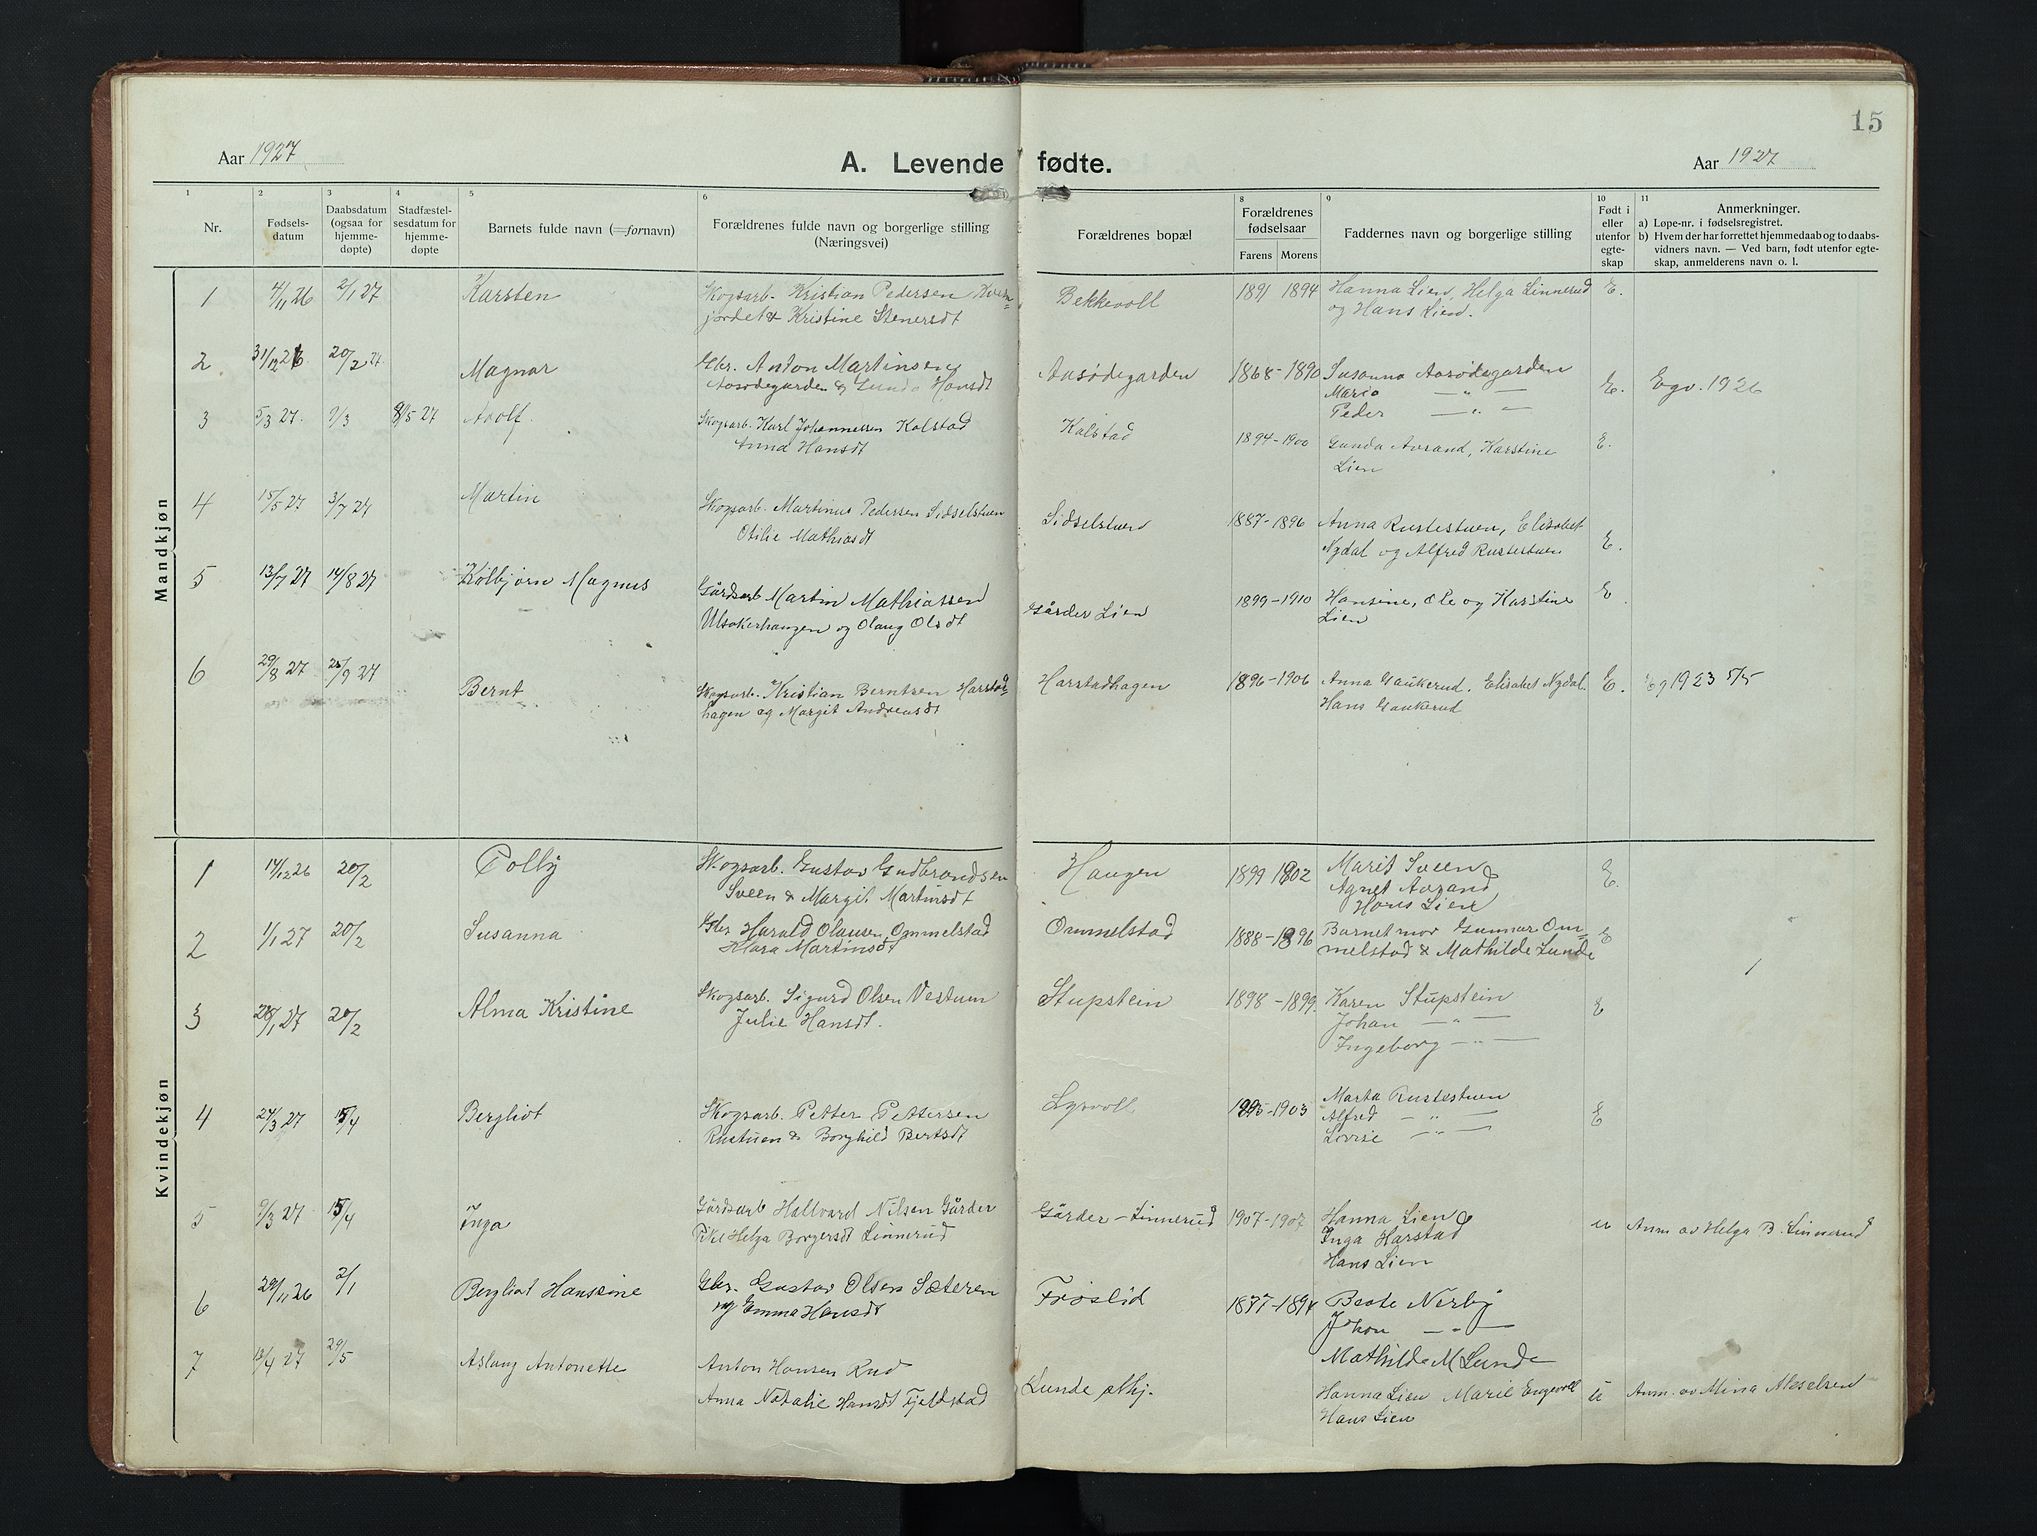 15
Aar 1927
A. Levende fødte.
Aar 1927
1 2 3 4 5 6 8 9 10 11
Nr.
Fødsels-
datum
Daabsdatum
(ogsaa for
hjemme-
døpte)
Stadfæstel-
sesdatum for
hjemme-
døpte
Barnets fulde navn (=fornavn)
Forældrenes fulde navn og borgerlige stilling
(Næringsvei)
Forældrenes bopæl
Forældrenes
fødselsaar
Farens Morens
Faddernes navn og borgerlige stilling
Født i
eller
utenfor
egte-
skap
Anmerkninger.
a) Løpe-nr. i fødselsregistret.
b) Hvem der har forrettet hjemmedaab og to daabs-
vidners navn. — Ved barn, født utenfor egte-
skap, anmelderens navn o. l.
Mandkjøn
1 4/11 26 2/1 27 Karsten Skogsarb. Kristian Pedersen Kvern- Bekkevoll 1891 1894 Hanna Lien, Helga Linnerud E.
jordet & Kristine Stenersdt og Hans Lien.
2 31/12 26 20/2 27 Magnar Gbr. Anton Martinsen Aasødegarden 1868-1890 Susanna Aasødegarden E. Egv. 1926
Aasødegarden & Gunda Hansdt Maria — " —
Peder — " —
3 5/3 27. 9/3 8/5 27 Arolf Skogsarb. Karl Johannessen Kolstad Kolstad 1894-1900 Gunda Aurand, Karstine E.
Anna Hansdt Lien
4 15/5 27 3/7 27 Martin Skogsarb. Martinus Pedersen Sidselstuen Sidselstuen 1887-1896 Anna Rustestuen, Elisabet
Otilie Mathiasdt Nydal og Alfred Rustestuen E.
5 13/7 27 14/8 27 Kolbjørn Magnus Gårdsarb Martin Mathiassen Gårder Lien 1899-1910 Hansine, Ole og Karstine E.
Ulsakerhaugen og Olaug Olsdt Lien
6 29/8 27 25/9 27 Bernt Skogsarb. Kristian Berntsen Harstad- Harstadhagen 1896-1906 Anna Gaukerud. Elisabet Nydal. E. Eg 1923 5/5
hagen og Margit Andreasdt Hans Gaukerud
Kvindekjøn
1 14/12 26 20/2 Tolly Skogsarb. Gustav Gudbrandsen Haugen 1899 1902 Marit Sveen E.
Sveen & Margit Martinsdt Agnet Aurand
Hans Lien
2 1/1 27 20/2 Susanna Gbr Harald Olausen Ommelstad Ommelstad 1888-1896 Barnet mor Gunnar Om- E
Klara Martinsdt melstad & Mathilde Lunde
3 28/1 27 20/2 Alma Kristine Skogsarb. Sigurd Olsen Vestum Stupstein 1898-1899 Karen Stupstein E
Julie Hansdt. Johan — " —
Ingeborg — " —
4 24/3 27 15/4 Bergliot Skogsarb. Petter Pettersen Lyvoll 1895-1903 Marta Rustestuen E
Rustuen & Borghild Berntsdt Alfred — " —
Lovise — " —
5 9/3 27 15/4 Inga Gårdsarb Hallvard Nilsen Gårder Gårder - Linnerud 1907-1907 Hanna Lien u Anm av Helga B. Linnerud
Pike Helga Borgersdt Linnerud Inga Harstad
Hans Lien
6 29/11 26 2/1 Bergliot Hansine Gbr. Gustav Olsen Sæteren Frøslid 1877-1894 Beate Nerby
og Emma Hansdt Johan — " —
Mathilde M Lunde
7 13/4 27 29/5 Aslaug Antonette Anton Hansen Rud Lunde Hanna Lien Marie Engevoll u Anm. av Mina Akselsen
Anna Natalie Hansdt Fjeldstad Hans Lien